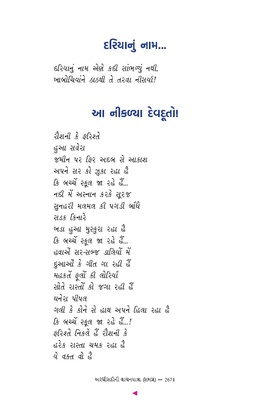 દરિયાનું નામ...
દરિયાનું નામ એણે કદી સાંભળ્યું નથી,
ખાબોચિયાંને ઠાઠથી તે તરવા નીસર્યા!
આ નીકળ્યા દેવદૂતો!
રૌશની કે ફરિશ્તે
હુઆ સવેરા
જમીન પર ફિર અદબ સે આકાશ
અપને સર કો ઝુકા રહા હૈ
કિ બચ્ચેં સ્કૂલ જા રહે હૈં...
નદી મેં અરનાન કરકે સૂરજ
સુનહરી મલમલ કી પગડી બાઁધે
સડક કિનારે
ખડા હુઆ મુસ્કુરા રહા હૈ
કિ બચ્ચેં સ્કૂલ જા રહે હૈં...
હવાએં સર-સબ્જ ડાલિયોં મેં
દુઆઓં કે ગીત ગા રહી હૈં
મહકતેં ફૂલોં કી લોરિયાં
સોતે રાસ્તોં કો જગા રહી હૈં
ઘનેરા પીપલ
ગલી કે કોને સે હાથ અપને હિલા રહા હૈ
કિ બચ્ચેં સ્કૂલ જા રહે હૈં...!
ફરિશ્તે નિકલે હૈં રૌશની કે
હરેક રાસ્તા ચમક રહા હૈ
યે વક્ત વો હૈ
અરધીસદીની વાચનયાત્રા — 2071